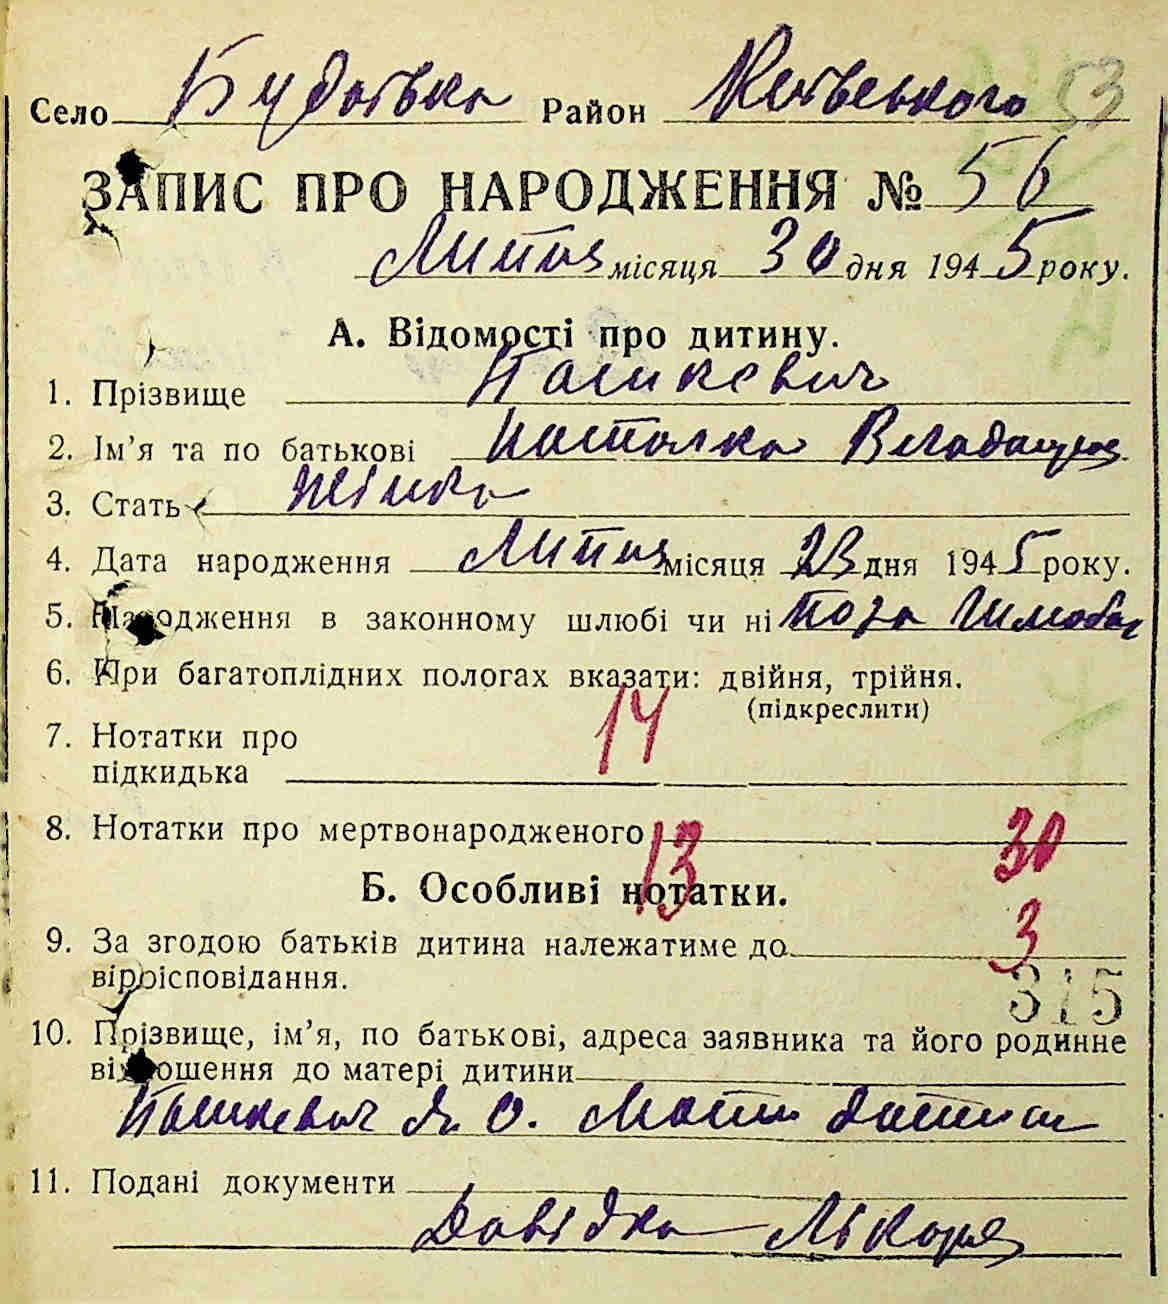 Село Будаївка Район Київського 53
ЗАПИС ПРО НАРОДЖЕННЯ № 56
Липня місяця 30 дня 1945 року.
А. Відомості про дитину.
1. Прізвище Пашкевич
2. Ім’я та по батькові
3. Стать жінка
4. Дата народження Липня місяця 23 дня 1945 року.
5. Народження в законному шлюбі чи ні поза шлюбом
6. При багатоплідних пологах вказати: двійня, трійня.
(підкреслити)
14
7. Нотатки про
підкидька
8. Нотатки про мертвонародженого
13 30
Б. Особливі нотатки.
3
9. За згодою батьків дитина належатиме до
віроісповідання.
315
10. Прізвище, ім’я, по батькові, адреса заявника та його родинне
відношення до матері дитини
Пашкевич О. Мати дитини
11. Подані документи
Довідка Лікаря